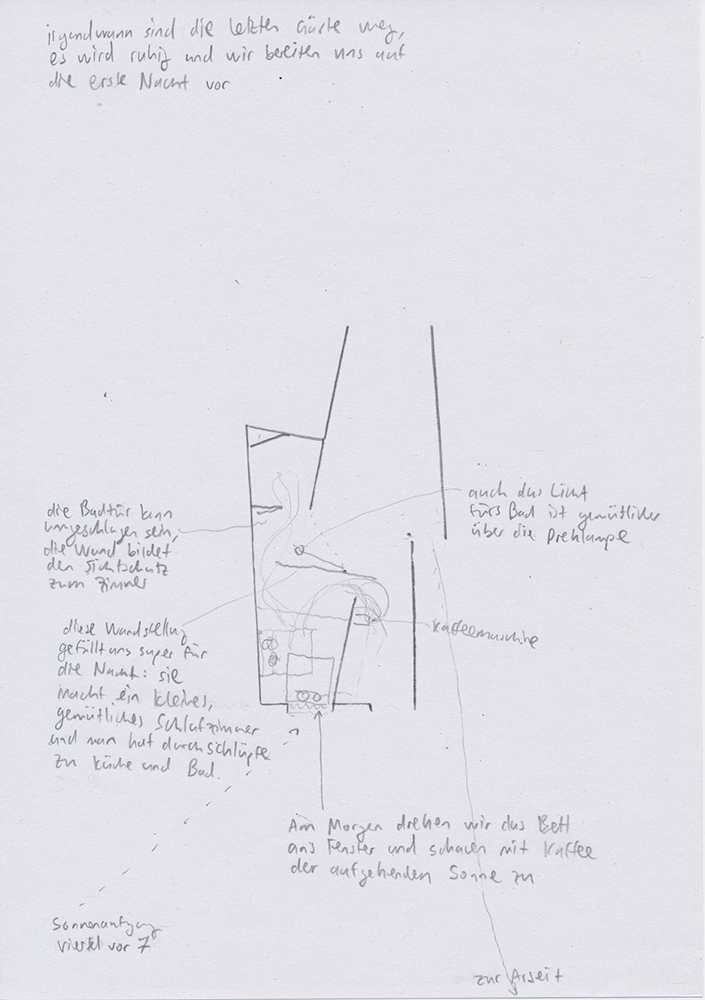 irgendwann sind die letzten Gäste weg,
es wird ruhig und wir bereiten uns auf
die erste Nacht vor
auch das Licht
fürs Bad ist gemütlicher
über die Drehlampe
die Badtür kann
umgeschlagen sein,
die Wand bildet
den Sichtschutz
zum Zimmer
diese Wandstellung
gefällt uns super für
die Nacht: sie
macht ein kleines,
gemütliches Schlafzimmer
und man hat durchschlüpfe
zu Küche und Bad.
Kaffeemaschine
Am Morgen drehen wir das Bett
ans Fenster und schauen mit Kaffee
der aufgehenden Sonne zu
Sonnenaufgang
viertel vor 7
zur Arbeit